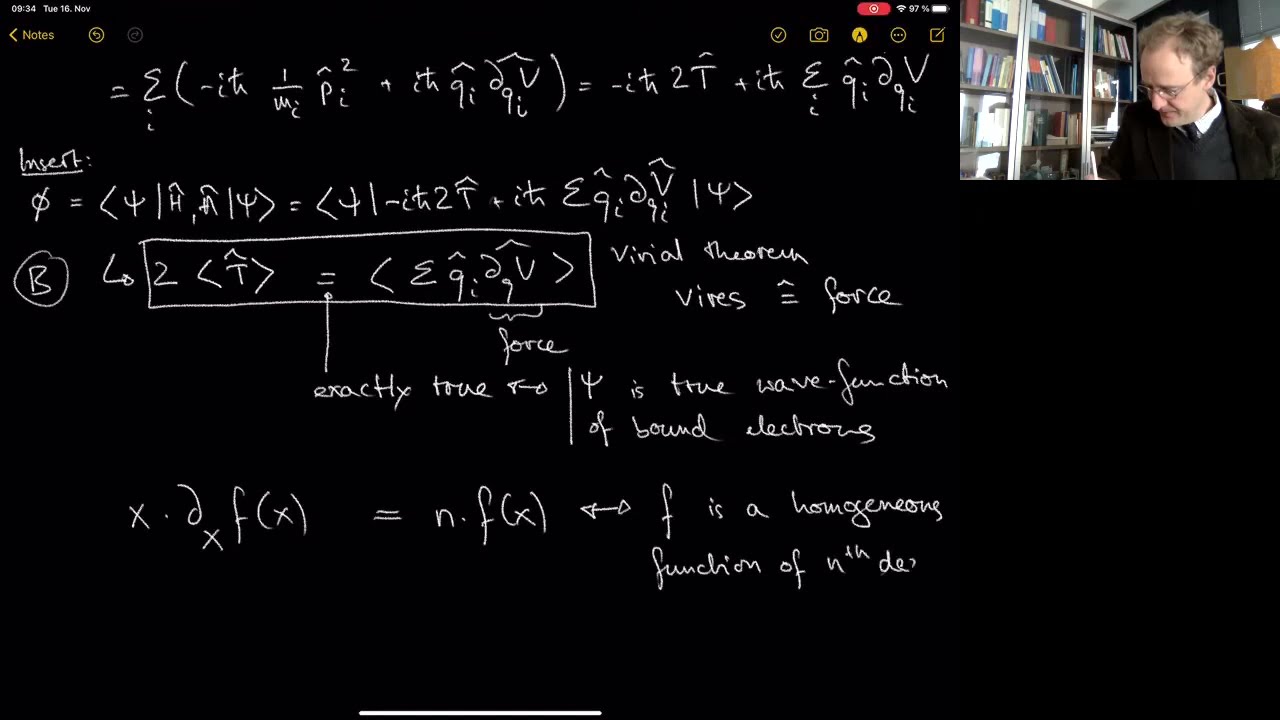 09:34 Tue 16. Nov
97 %
Notes
= Σ_i ( -iħ 1/m_i p̂_i² + iħ q̂_i ∂_{q_i}V̂ ) = -iħ 2T̂ + iħ Σ_i q̂_i ∂_{q_i} V̂
Insert:
∅ = ⟨Ψ|Ĥ, Â|Ψ⟩ = ⟨Ψ|-iħ2T̂ + iħ Σ q̂_i ∂_{q_i} V̂ |Ψ⟩
Ⓑ ↳ 2 ⟨T̂⟩ = ⟨ Σ q̂_i ∂_q V̂ ⟩ virial theorem
vires ≙ force
force
exactly true ↔ Ψ is true wave-function
of bound electrons
x · ∂_x f(x) = n · f(x) ↔ f is a homogeneous
function of nth de